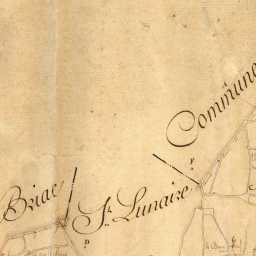 Commune
Briac
St. Lunaire
P
P